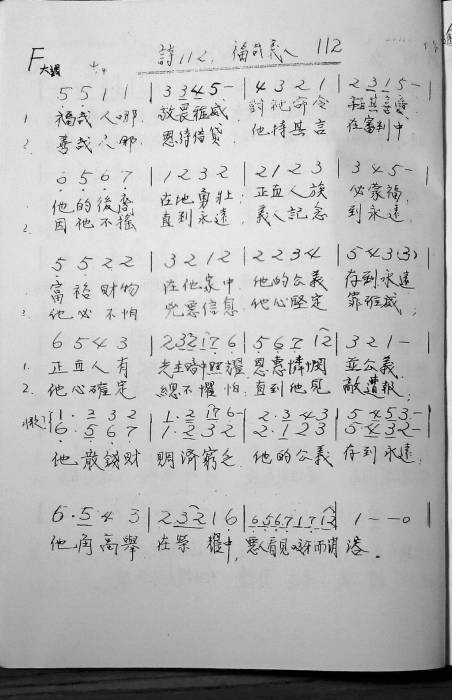 F大調 4/4 詩112, 福哉義人 112
5 5 1 1 | 3 3 4 5 - | 4 3 2 1 | 2 3 1 5 -
1 福哉人哪, 敬畏雅威 對祂命令 極其喜愛
2. 善哉人哪, 恩待借貸. 他持其言 在審判中
6 5 6 7 | 1 2 3 2 | 2 1 2 3 | 3 4 5 -
他的後裔 在地勇壯; 正直人族 必蒙福,
2. 因他不搖 直到永遠, 義人記念 到永遠
5 5 2 2 | 3 2 1 2 | 2 2 3 4 | 5 4 3 (3)
富裕財物 在他家中. 他的公義 存到永遠
他必不怕 兇惡信息 他心堅定 靠雅威;
6 5 4 3 | 2 3 2 1 7 6 | 5 6 7 1 2 | 3 2 1 -
1. 正直人有 光在暗中照耀 恩惠憐憫 並公義.
2. 他心確定 總不懼怕, 直到他見 敵遭報,
1 . 2 3 2 | 1 . 2 1 7 6 - | 2 . 3 4 3 | 5 4 5 3 -
6 . 5 6 7 | 1 . 2 3 2 | 2 . 1 2 3 | 5 4 3 2 -
他散錢財 賙濟窮乏. 他的公義 存到永遠,
6 . 5 4 3 | 2 3 2 1 6 | 6 5 6 7 1 7 1 2 | 1 - - 0
他角高舉 在榮耀中, 惡人看見咬牙而消沒。